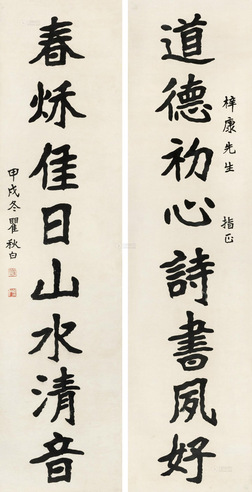 道德初心詩書夙好
梓康先生 指正
春秌佳日山水清音
甲戌冬瞿秋白